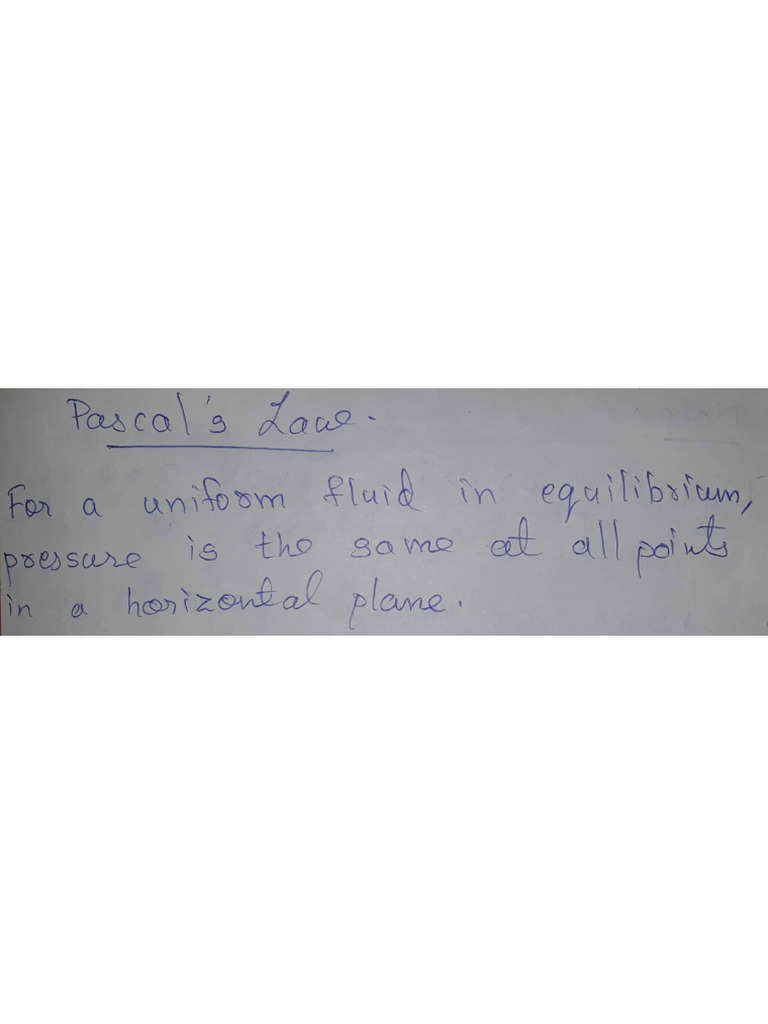 Pascal's Law.
For a uniform fluid in equilibrium,
pressure is the same at all points
in a horizontal plane.